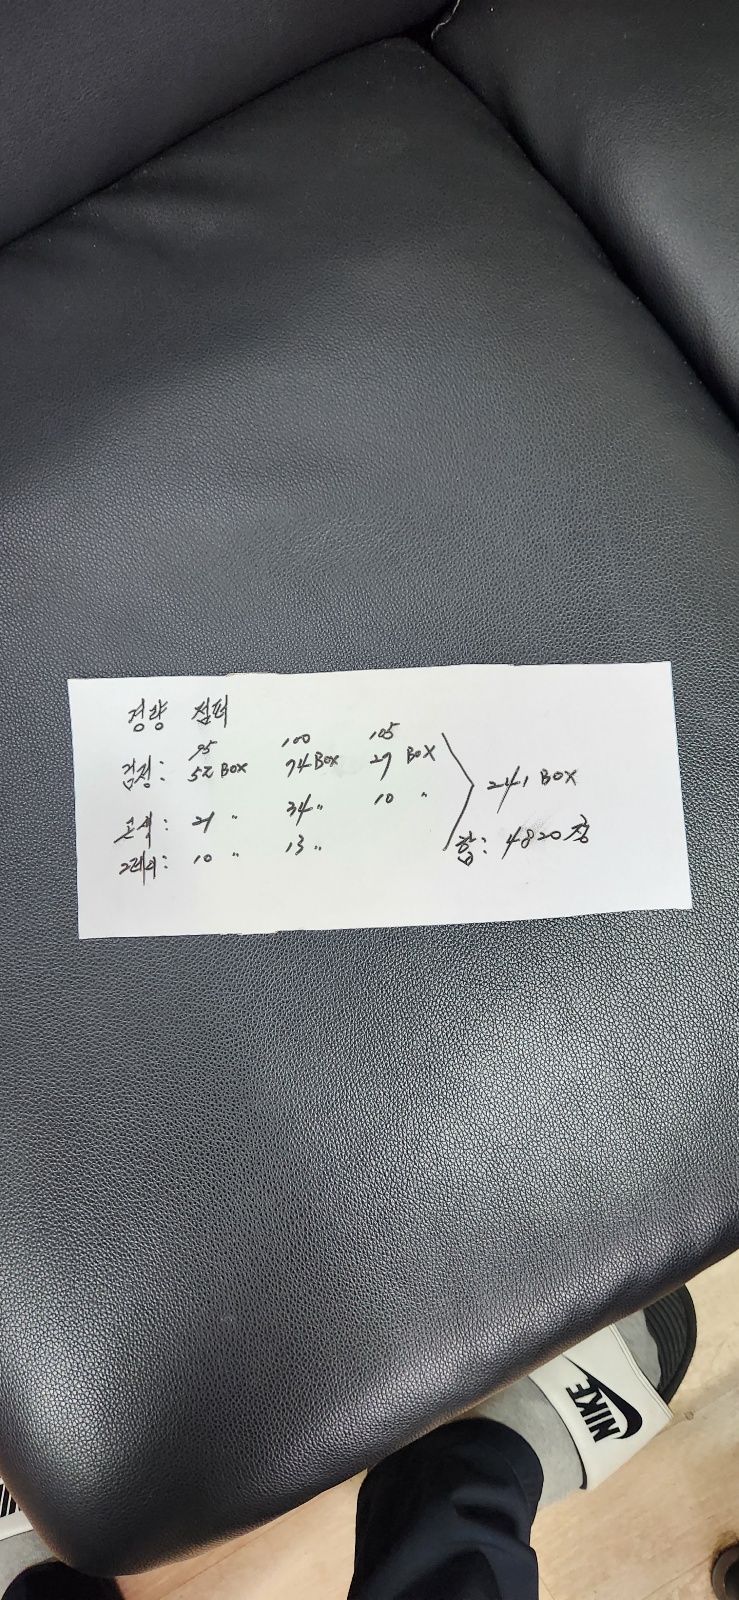 경량 점퍼
95 100 105
검정: 52 BOX 74 BOX 27 BOX
곤색: 21 〃 34 〃 10 〃
그레이: 10 〃 13 〃
241 BOX
합: 4820장
NIKE